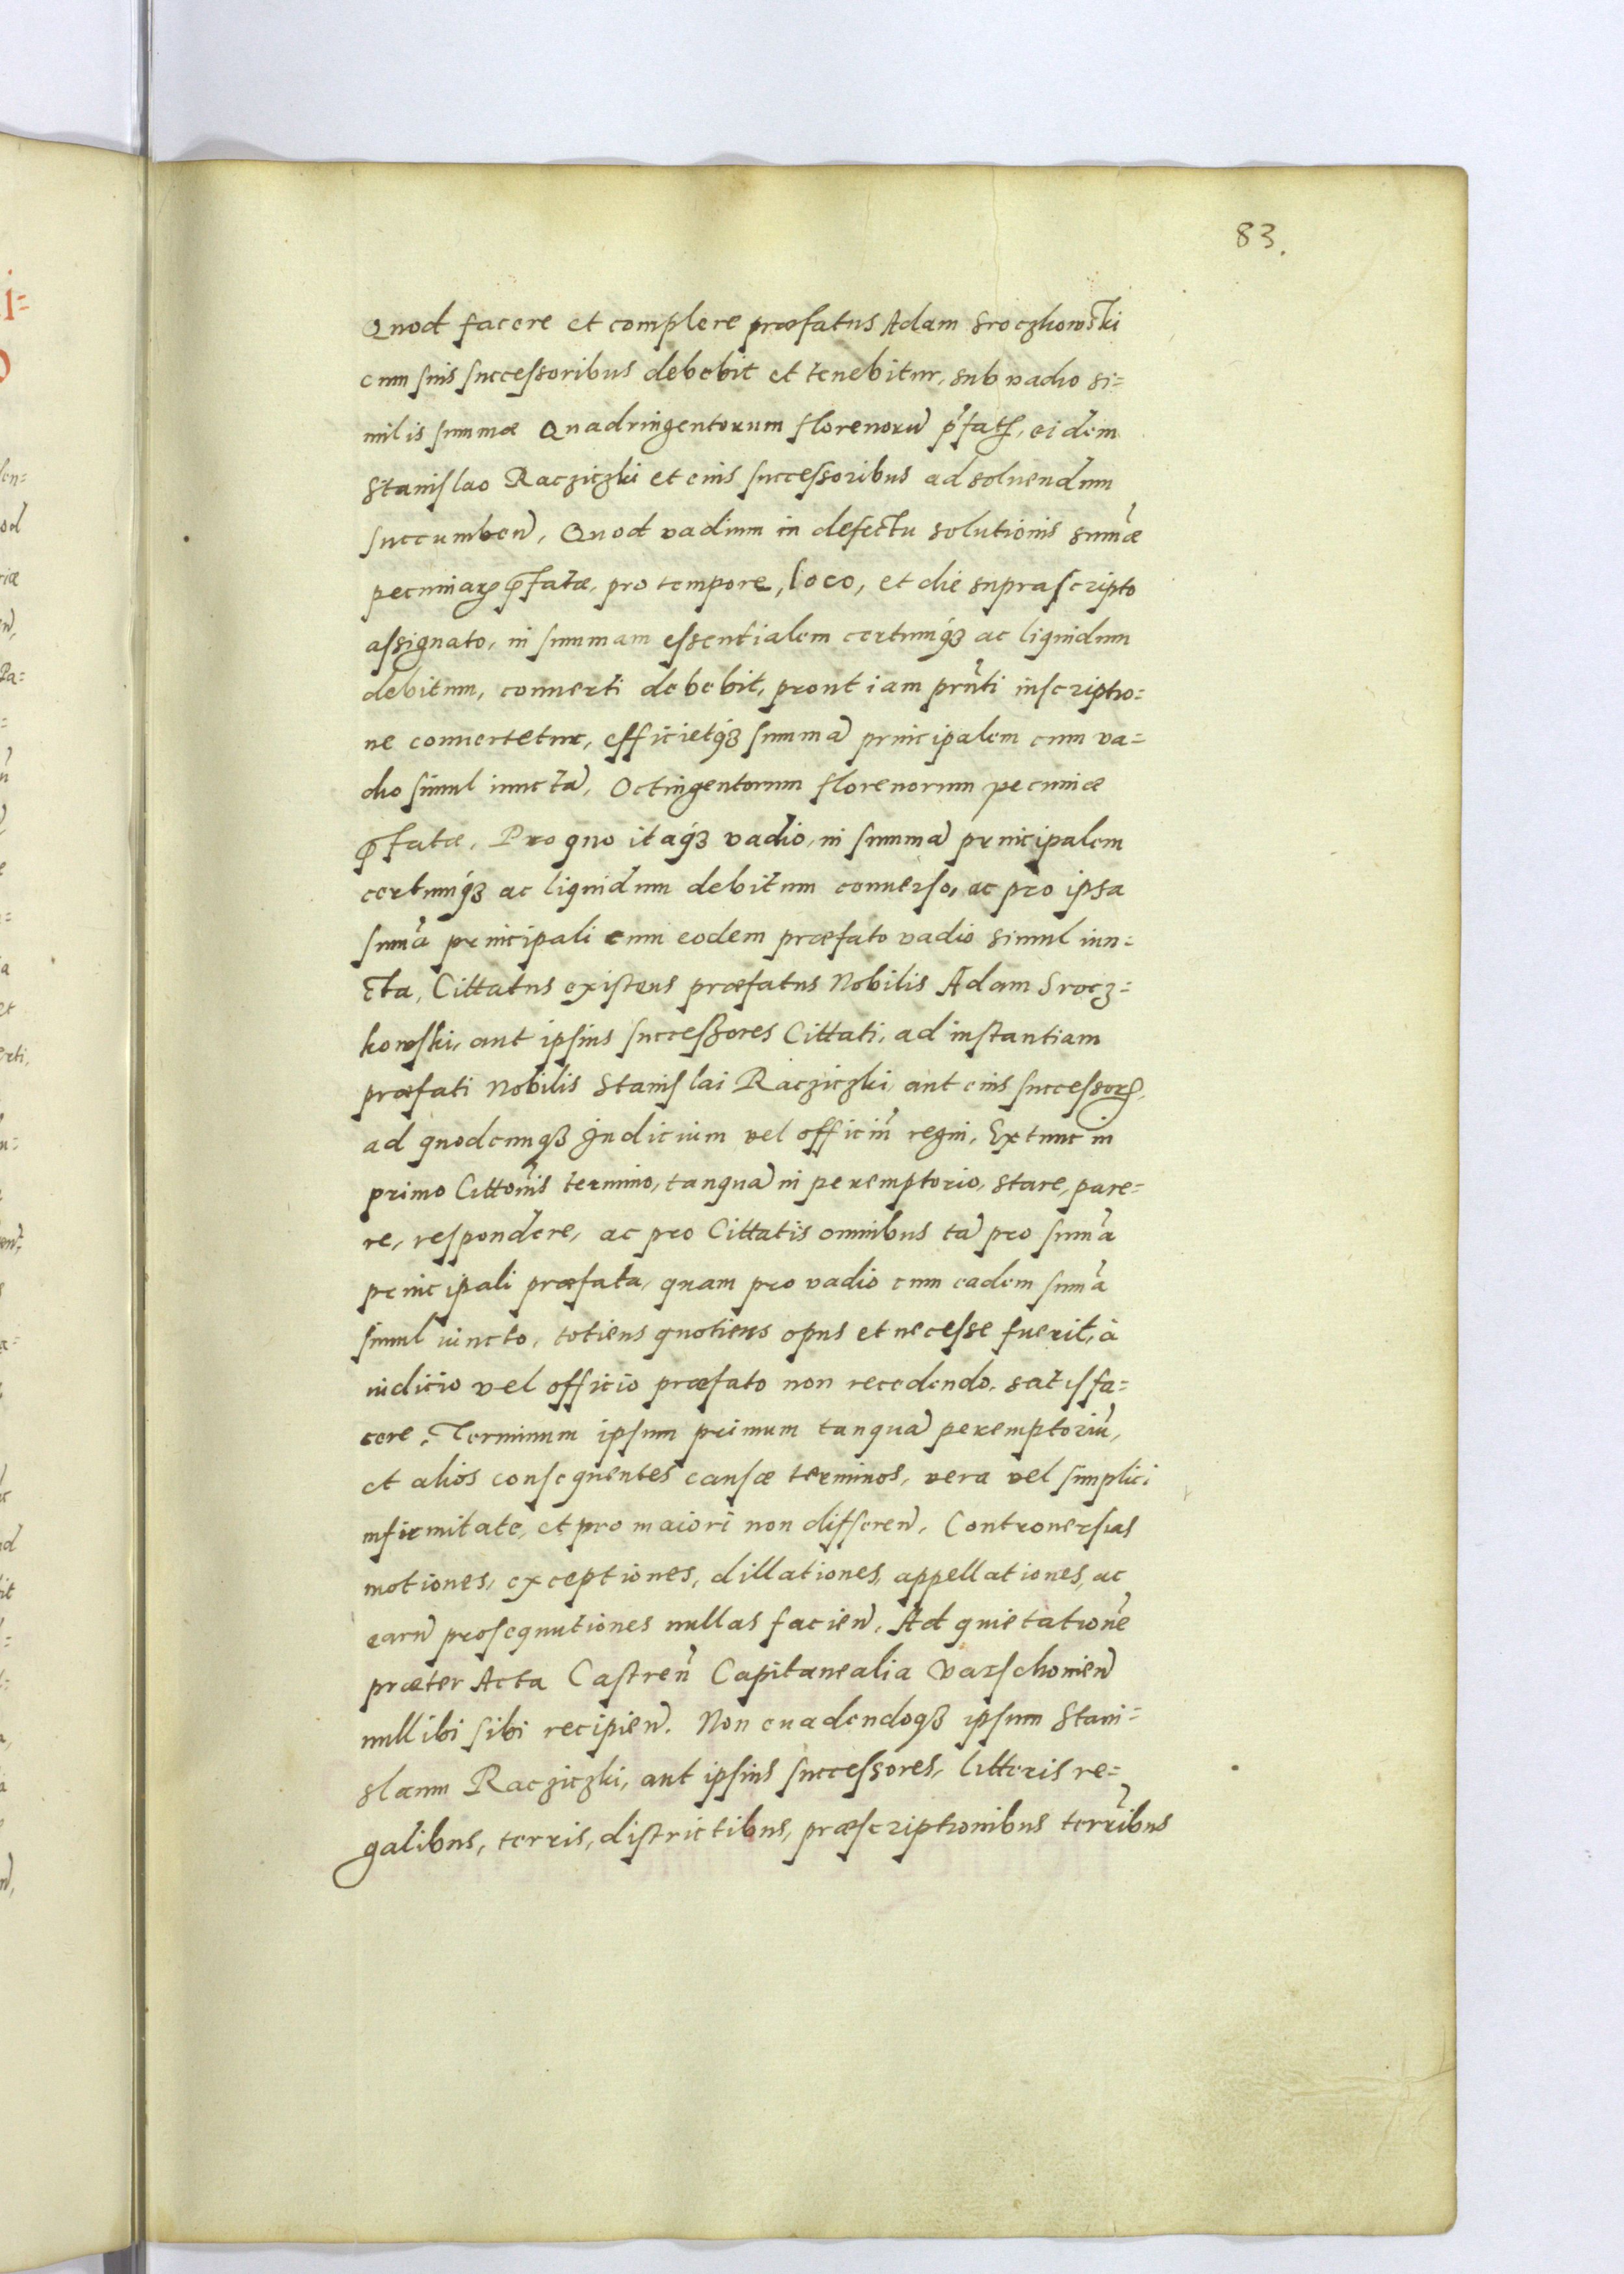 83.
Quod facere et complere præfatus Adam Sroczkowski
cum suis successoribus debebit et tenebitur, sub vadio si=
milis summæ Quadringentorum florenorū p̃fatꝝ, eidem
Stanislao Racziczki et eius successoribus ad soluendum
succumbeñ, Quod vadium in defectu solutionis sum̃æ
pecuniaꝝ p̃fatæ, pro tempore, loco, et die suprascripto
assignato, in summam essentialem certumq́ꝫ ac liquidum
debitum, conuerti debebit, prout iam pr̃nti inscriptio=
ne conuertetur, efficietq́ꝫ summā principalem cum va=
dio simul iunctā, Octingentorum florenorum pecuniæ
p̃fatæ, Pro quo itaq́ꝫ vadio, in summā principalem
certumq́ꝫ ac liquidum debitum conuerso, ac pro ipsa
sum̃a principali cum eodem præfato vadio simul iun=
cta, Cittatus existens præfatus Nobilis Adam Srocz=
kowski, aut ipsius successores Cittati, ad instantiam
præfati Nobilis Stanislai Racziczki, aut eius successorꝝ,
ad quodcunqꝫ Iudicium vel officiũ regni, Extunc in
primo Citto͠nis termino, tanquā in peremptorio, stare, pare=
re, respondere, ac pro Cittatis omnibus tā pro sum̃a
principali præfata, quam pro vadio cum eadem sum̃a
simul iuncto, totiens quotiens opus et necesse fuerit, à
iudicio vel officio præfato non recedendo, satisfa=
cere, Terminum ipsum primum tanquā peremptoriũ,
et alios consequentes causæ terminos, vera vel simplici
infirmitate, et pro maiori non differeñ, Controuersias
motiones, exceptiones, dillationes, appellationes, ac
earū prosequutiones nullas facieñ, Ad quietationẽ
præter Acta Castreñ Capitanealia Varschouieñ
nullibi sibi recipieñ. Non euadendoqꝫ ipsum Stani=
slaum Racziczki, aut ipsius successores, litteris re=
galibus, terris, districtibus, præscriptionibus terr̃ibus